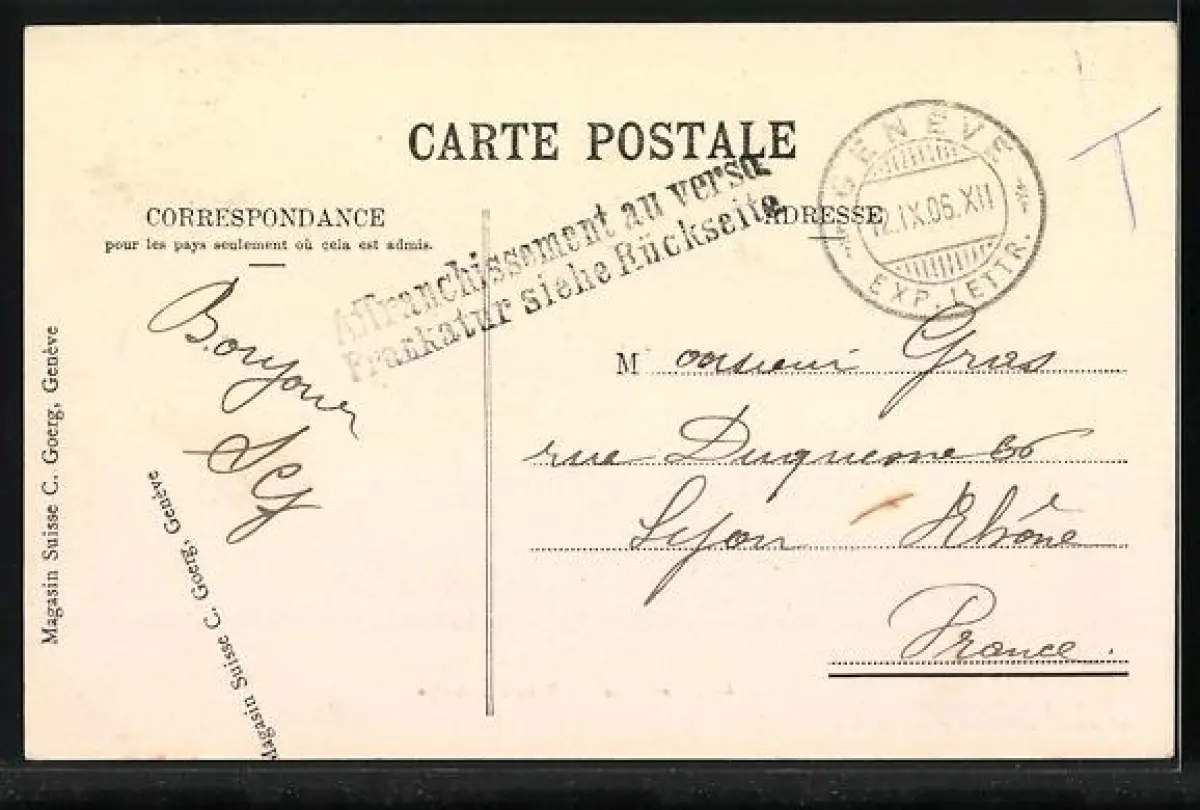 CARTE POSTALE
GENÈVE
12.IX.06.XII
EXP. LETTR.
T
Affranchissement au verso.
Frankatur siehe Rückseite
CORRESPONDANCE
pour les pays seulement où cela est admis.
ADRESSE
Bonjour
Monsieur Gras
rue Duquesne 36
Lyon Rhône
France.
Magasin Suisse C. Goerg, Genève
Magasin Suisse C. Goerg, Genève